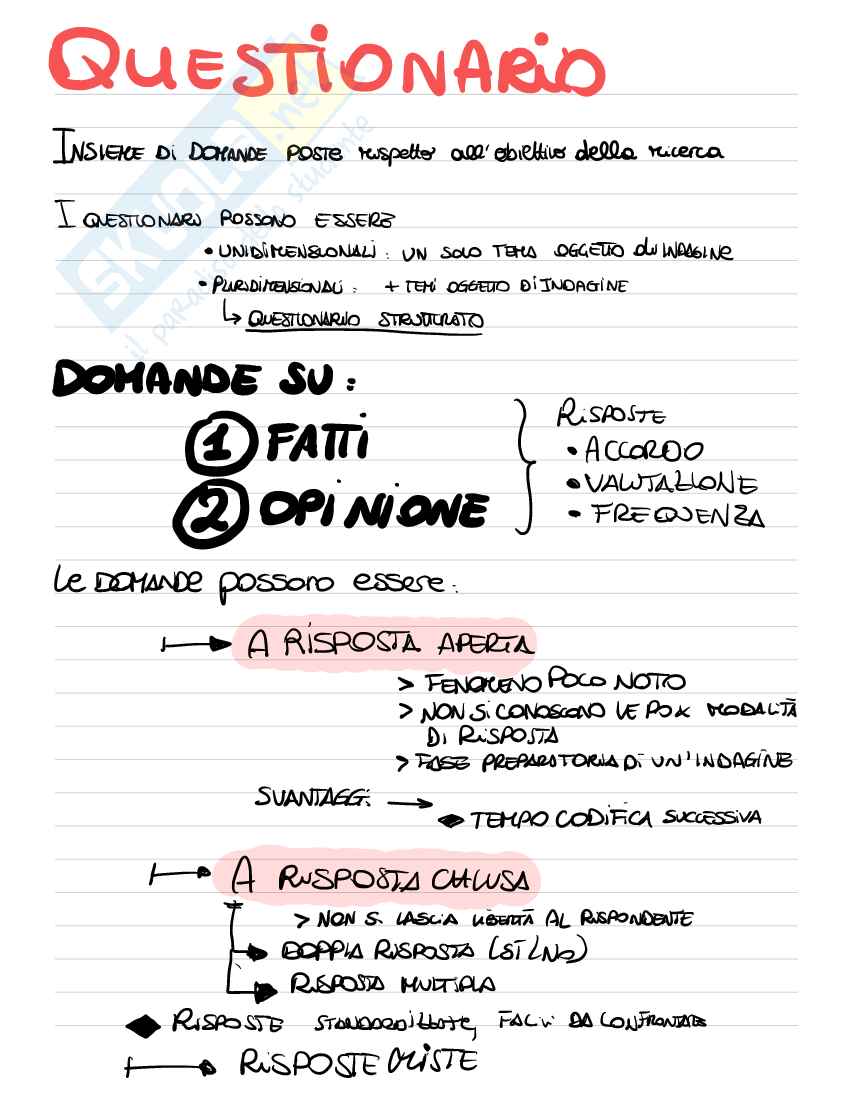 QUESTIONARIO
INSIEME DI DOMANDE POSTE rispetto all'obiettivo della ricerca
I QUESTIONARI POSSONO ESSERE
• UNIDIMENSIONALI: UN SOLO TEMA OGGETTO di INDAGINE
• PLURIDIMENSIONALI: + TEMI OGGETTO DI INDAGINE
↳ QUESTIONARIO STRUTTURATO
DOMANDE SU:
① FATTI
② OPINIONE
RISPOSTE
• ACCORDO
• VALUTAZIONE
• FREQUENZA
Le DOMANDE possono essere:
A RISPOSTA APERTA
> FENOMENO POCO NOTO
> NON SI CONOSCONO LE POX MODALITÀ
DI RISPOSTA
> FASE PREPARATORIA DI UN'INDAGINE
SVANTAGGI: →
◆ TEMPO CODIFICA SUCCESSIVA
A RISPOSTA CHIUSA
> NON SI LASCIA LIBERTÀ AL RISPONDENTE
DOPPIA RISPOSTA (SÌ/NO)
RISPOSTA MULTIPLA
◆ RISPOSTE STANDARDIZZATE, FACILI DA CONFRONTARE
RISPOSTE MISTE
SKUOLA.net
il paradiso dello studente